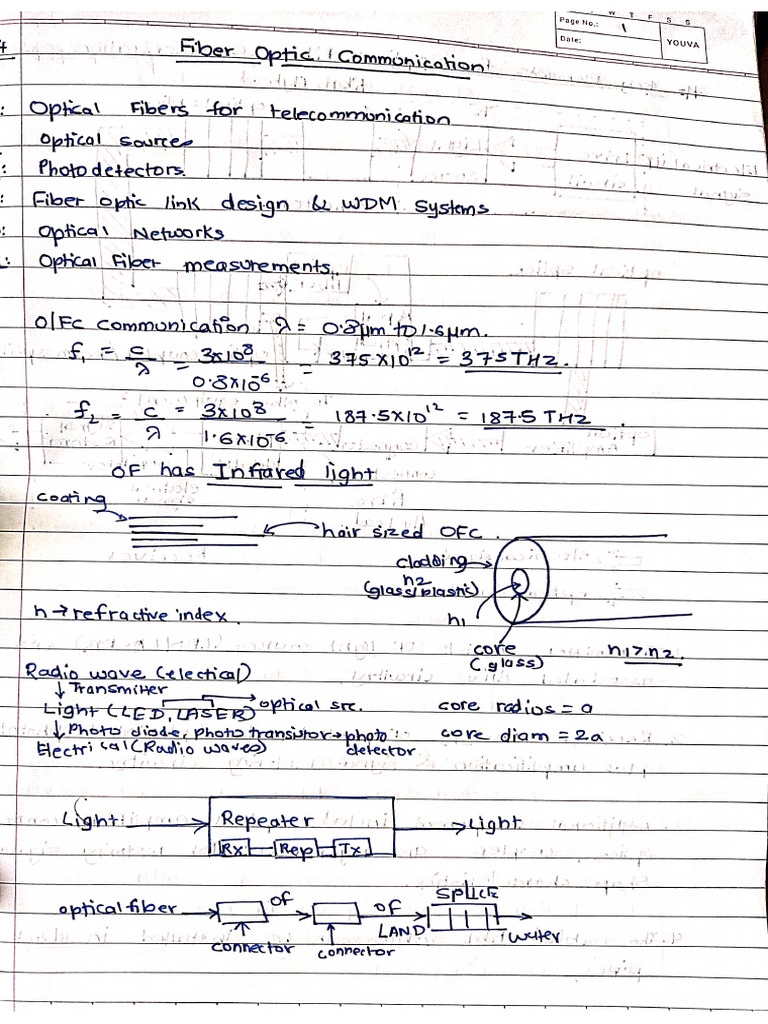 W T F S S
Page No.: 1
Date:
YOUVA
Fiber Optic Communication
: Optical Fibers for telecommunication
Optical sources
: Photodetectors.
: Fiber optic link design & WDM Systems
: Optical Networks
: Optical Fiber measurements.
O/FC communication λ = 0.8μm to 1.6μm.
f₁ = c/λ = 3×10⁸/0.8×10⁻⁶ = 375×10¹² = 375THz.
f₂ = c/λ = 3×10⁸/1.6×10⁻⁶ = 187.5×10¹² = 187.5 THz.
OF has Infrared light
coating
hair sized OFC.
cladding
n2
(glass/plastic)
n → refractive index.
n1
core
(glass)
n1>n2.
Radio wave (electical)
↓ Transmiter
Light (LED, LASER) → optical src.
core radios = a
↓ Photo diode, photo transistor → photo detector
core diam = 2a
Electrical (Radio waves)
Light → Repeater → Light
Rx Rep Tx
SPLICE
optical fiber → OF → OF
LAND
water
connector connector